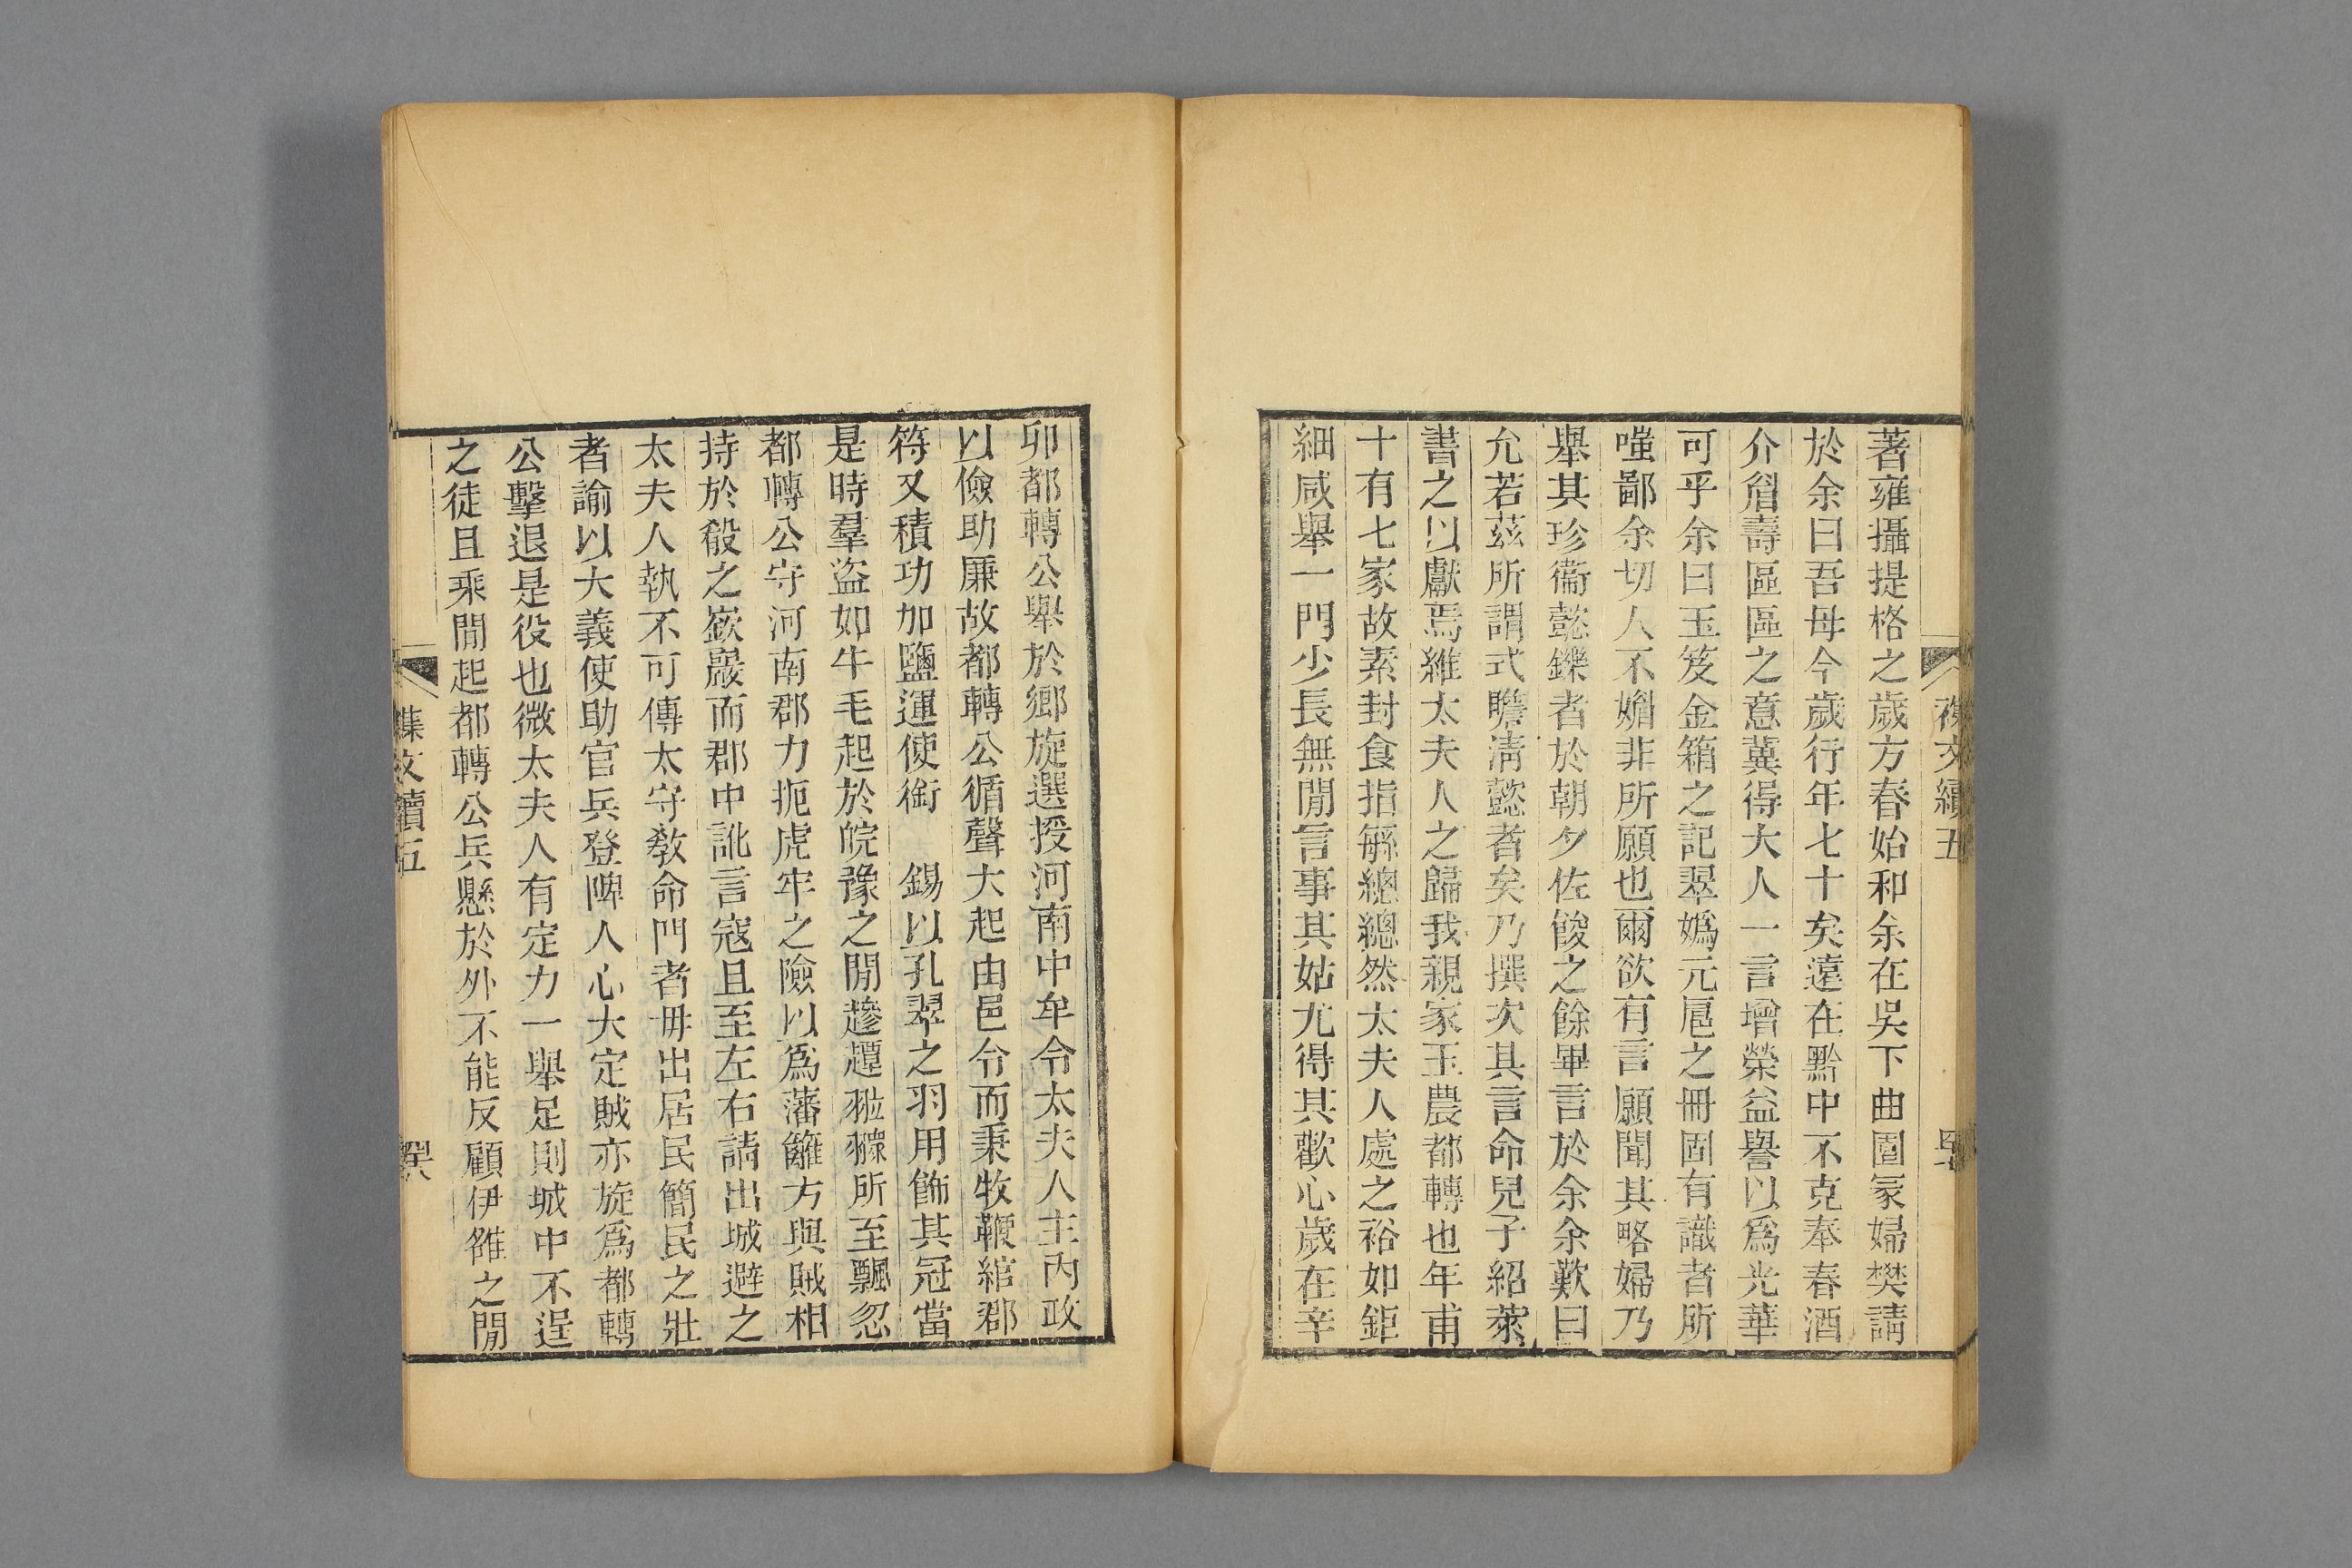 著雍攝提格之歲方春始和余在吳下曲園冢婦樊請
於余曰吾母今歲行年七十矣遠在黔中不克奉春酒
介眉壽區區之意冀得大人一言增榮益譽以爲光華
可乎余曰玉笈金箱之記翠嬀元扈之冊固有識者所
嗤鄙余切人不媚非所願也爾欲有言願聞其略婦乃
舉其珍衞懿鑠者於朝夕佐餕之餘畢言於余余歎曰
允若茲所謂式瞻淸懿者矣乃撰次其言命兒子紹萊
書之以獻焉維太夫人之歸我親家玉農都轉也年甫
十有七家故素封食指緐總總然太夫人處之裕如鉅
細咸舉一門少長無閒言事其姑尤得其歡心歲在辛
襍文續五
卯都轉公舉於鄉旋選授河南中牟令太夫人主內政
以儉助廉故都轉公循聲大起由邑令而秉牧鞭綰郡
符又積功加鹽運使銜 錫以孔翠之羽用飾其冠當
是時羣盜如牛毛起於皖豫之閒趁䟃翋所至飄忽
都轉公守河南郡力扼虎牢之險以爲藩籬方與賊相
持於殽之嶔巖而郡中訛言寇且至左右請出城避之
太夫人執不可傳太守敎命門者毋出居民簡民之壯
者諭以大義使助官兵登陴人心大定賊亦旋爲都轉
公擊退是役也微太夫人有定力一舉足則城中不逞
之徒且乘閒起都轉公兵懸於外不能反顧伊雒之閒
襍文續五